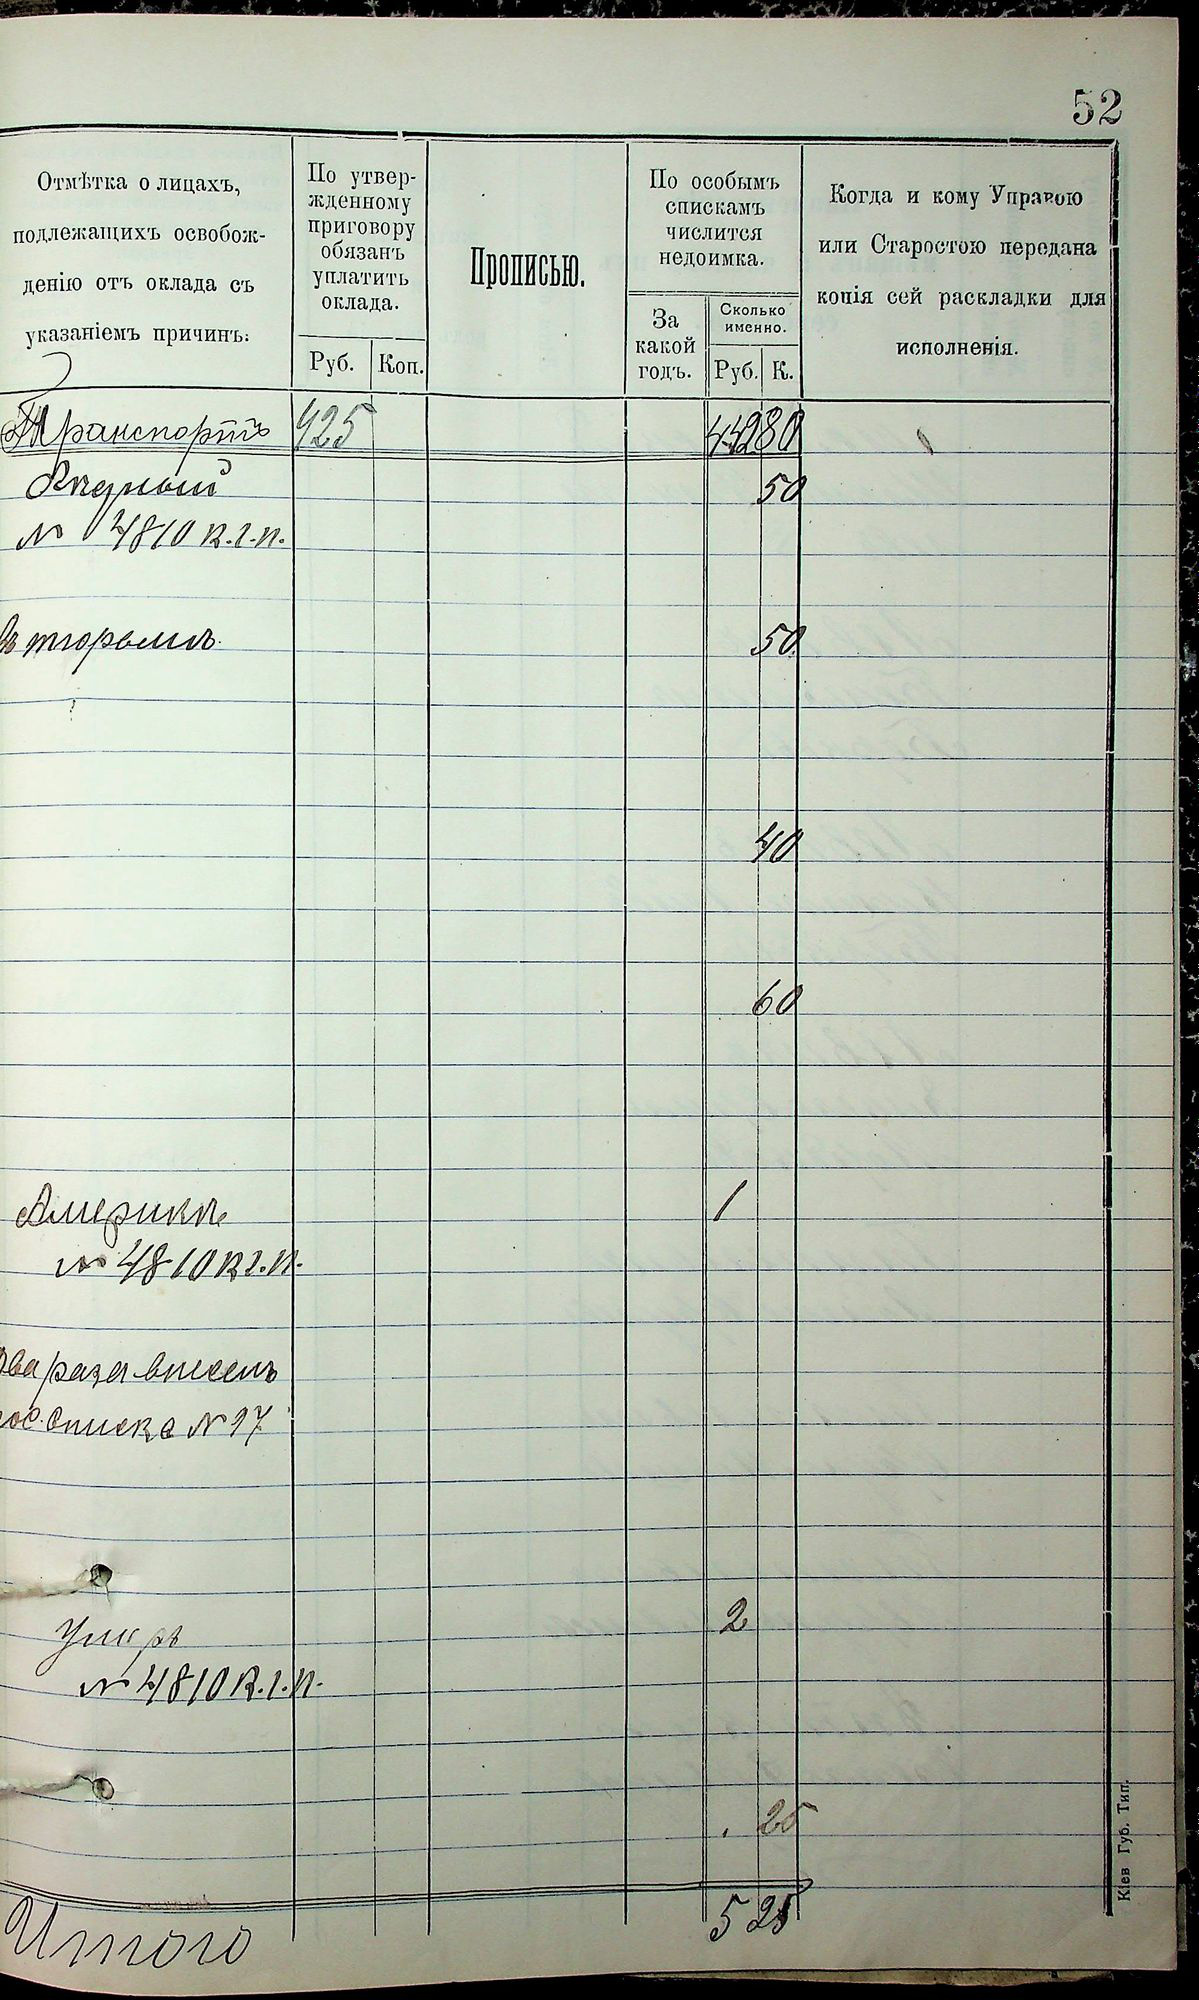 52
Отмѣтка о лицахъ,
подлежащихъ освобож-
денію отъ оклада съ
указаніемъ причинъ:
По утвер-
жденному
приговору
обязанъ
уплатить
оклада.
Руб. Коп.
Прописью.
По особымъ
спискамъ
числится
недоимка.
За
какой
годъ.
Сколько
именно.
Руб. К.
Когда и кому Управою
или Старостою передана
копія сей раскладки для
исполненія.
Транспортъ 425 44280
Бѣдный 50
№ 4810 К.г.п.
Въ тюрьмѣ. 50
40
60
Америкѣ 1
№ 4810 К.г.п.
два раза внесенъ
списка № 17
Умеръ 2
№ 4810 К.г.п.
25
Итого 5 25
Кіев Губ. Тип.